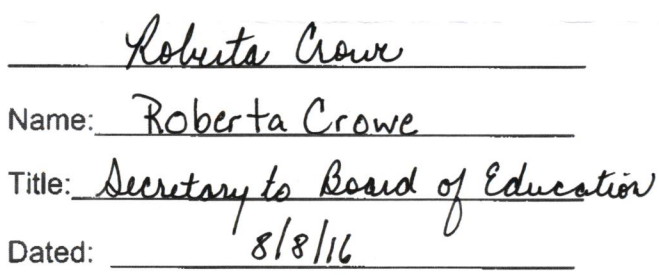 Roberta Crowe
Name: Roberta Crowe
Title: Secretary to Board of Education
Dated: 8/8/16